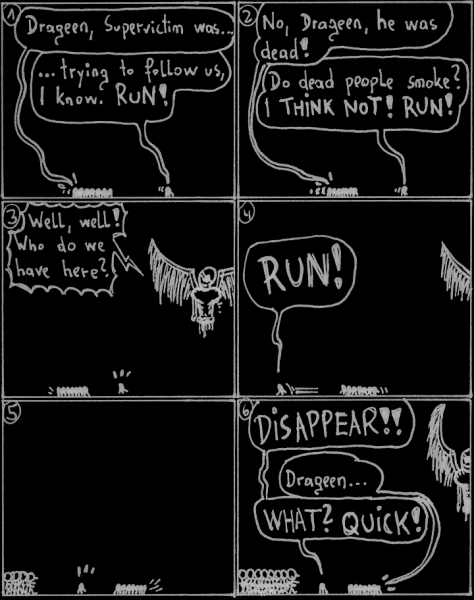 1
Drageen, Supervictim was...
...trying to follow us,
I know. RUN!
2
No, Drageen, he was
dead!
Do dead people smoke?
I THINK NOT! RUN!
3
Well, well!
Who do we
have here?
4
RUN!
5
6
DISAPPEAR!!
Drageen...
WHAT? QUICK!